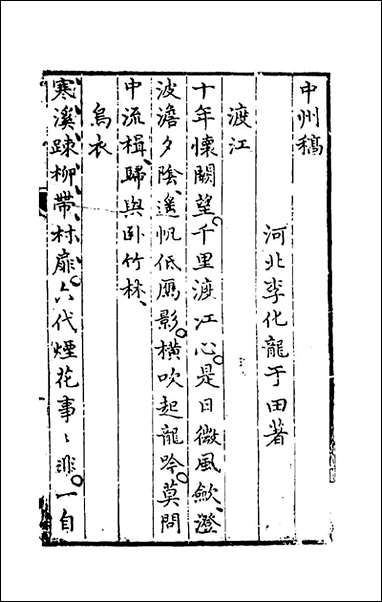 中州稿
河北李化龍于田著
渡江
十年懷闕望千里渡江心是日微風歛澄
波澹夕陰遙帆低鴈影橫吹起龍吟莫問
中流楫歸與臥竹林
烏衣
寒溪踈柳帶村扉六代煙花事〻非一自